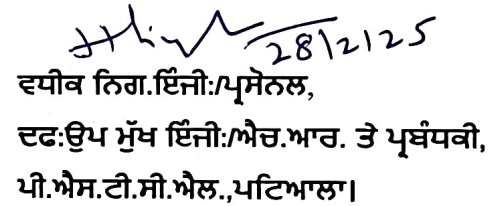 28/2/25
ਵਧੀਕ ਨਿਗ.ਇੰਜੀ:/ਪ੍ਰਸੋਨਲ,
ਦਫ:ਉਪ ਮੁੱਖ ਇੰਜੀ:/ਐਚ.ਆਰ. ਤੇ ਪ੍ਰਬੰਧਕੀ,
ਪੀ.ਐਸ.ਟੀ.ਸੀ.ਐਲ.,ਪਟਿਆਲਾ।